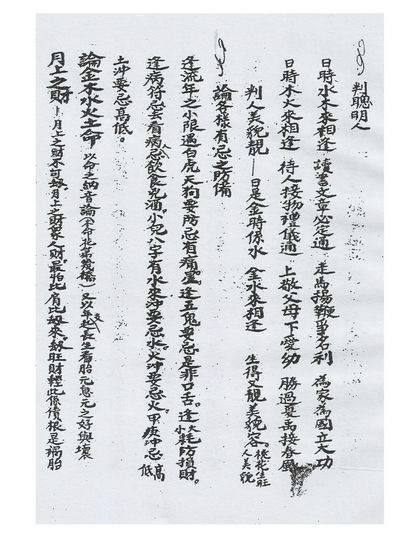 判聰明人
日時水木來相逢 讀書文章必定通 走馬揚鞭爭名利 為家為國立大功
日時木火來相逢 待人接物禮儀通 上敬父母下愛幼 勝過夏禹接春風
判人美貌靚——日是金時係水 金水來相逢 生得又靚美貌容。桃花生旺人美貌
論各樣有忌之防備
逢流年之小限遇白虎天狗要防忌有痛 逢五鬼要忌是非口舌。逢小大耗防損財。
逢病符忌去看病人忌飲食死酒。小兒八字有水來沖要忌水。火沖要忌火。甲庚沖忌高低
土沖要忌高低。
論金木水火土命 以命之納音論 又以年起長生看胎元息元之好與壞
月上之財 月上之財不可劫月上之財象人財。最怕比肩比劫來。劫旺財輕此係債根是禍胎